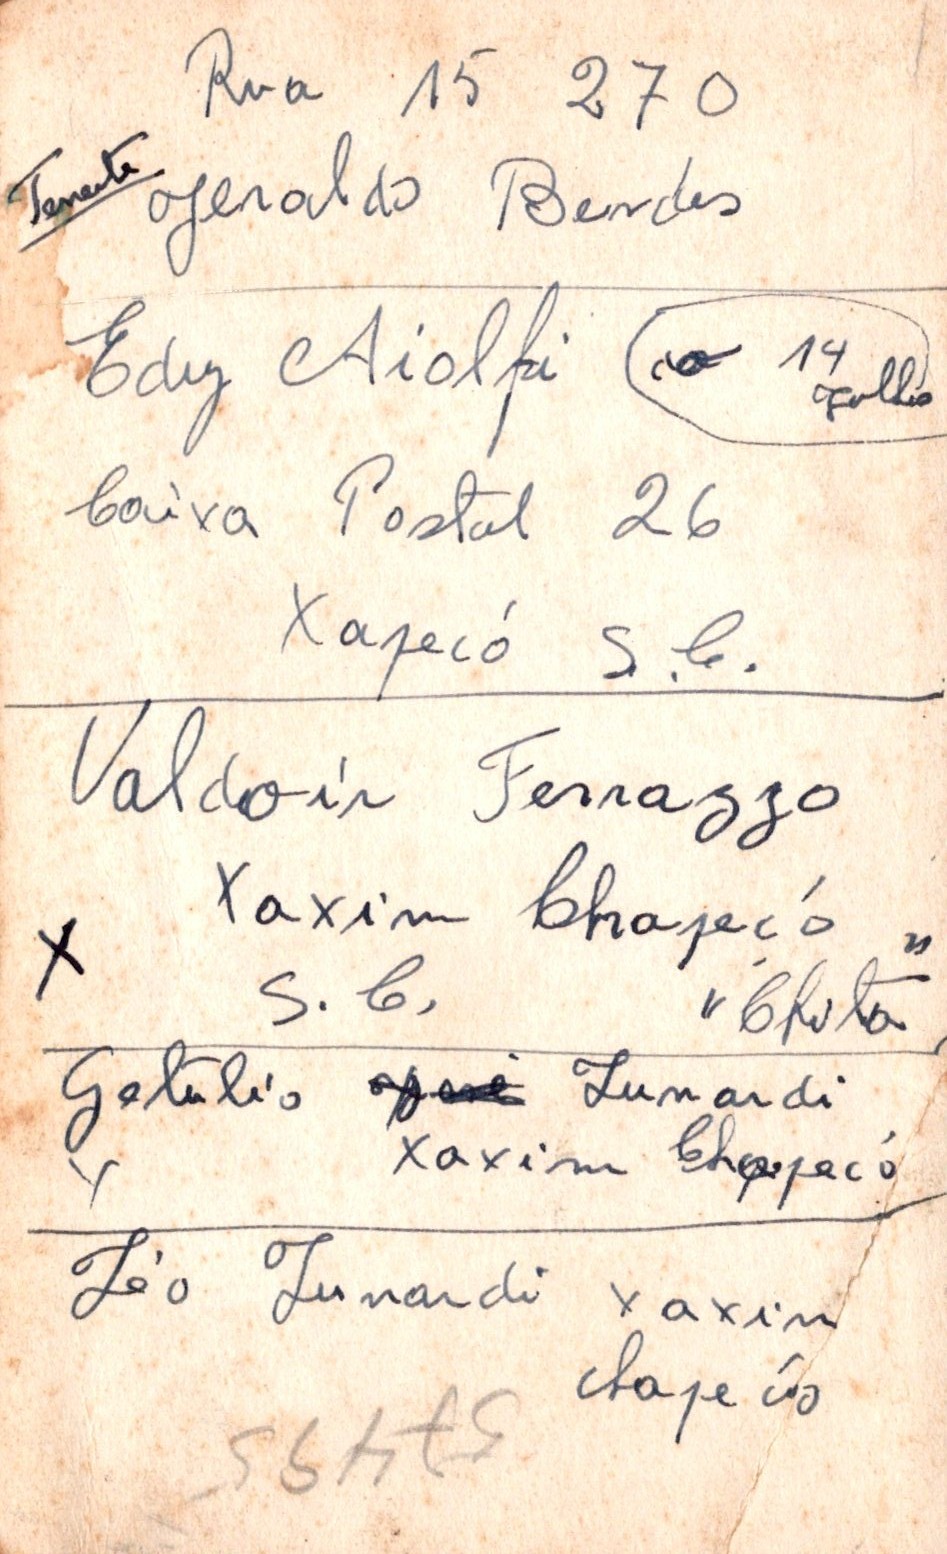 Rua 15 270
Tenente Geraldo Bendes
Edy Aiolfi 14
Julho
Caixa Postal 26
Xapecó S.C.
Valdoir Ferrazzo
Xaxim Chapecó
X S.C. "Chita"
Getulio Lunardi
Xaxim Chapecó
Léo Lunardi xaxim
chapecó